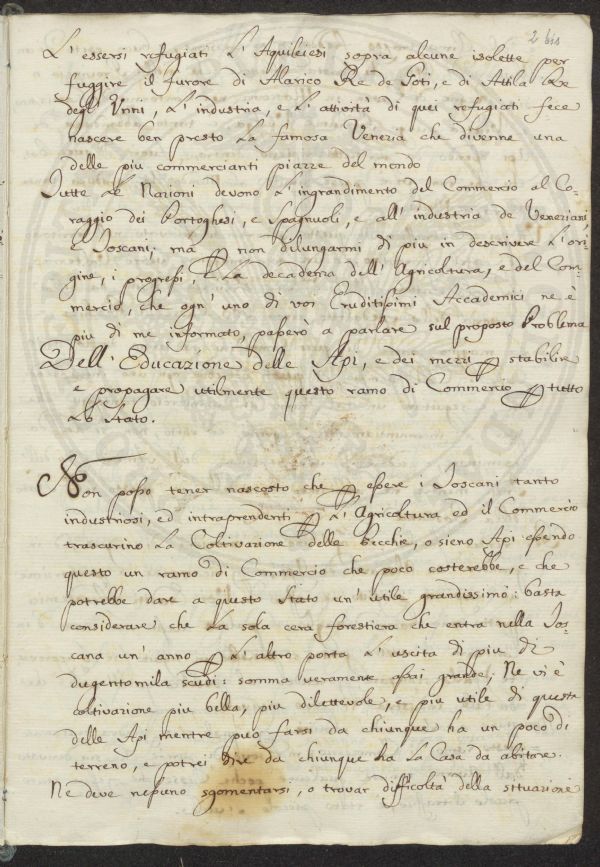 2 bis
L'essersi refugiati L'Aquileiesi sopra alcune isolette per
fuggire il furore di Alarico Re de Goti, e di Attila Re
degl'Unni, L'industria, e L'attività di quei refugiati fece
nascere ben presto La famosa Venezia che divenne una
delle piu commercianti piazze del mondo
Tutte Le Nazioni devono L'ingrandimento del Commercio al Co-
raggio dei Portoghesi, e Spagnuoli, e all'industria de Veneziani,
e Toscani; ma p non dilungarmi di piu in descrivere L'ori-
gine, i progressi, e La decadenza dell'Agricoltura, e del Com-
mercio, che ogn'uno di voi Eruditissimi Accademici ne è
piu di me informato, passerò a parlare sul proposto Problema
Dell'Educazione delle Api, e dei mezzi p stabilire
e propagare utilmente questo ramo di Commercio p tutto
Lo Stato.
Non posso tener nascosto che p essere i Toscani tanto
industriosi, ed intraprendenti p L'Agricoltura ed il Commercio
trascurino La Coltivazione delle Pecchie, o sieno Api essendo
questo un ramo di Commercio che poco costerebbe, e che
potrebbe dare a questo Stato un'utile grandissimo: basta
considerare che La sola cera forestiera che entra nella Tos-
cana un'anno p L'altro porta L'uscita di piu di
dugentomila scudi: somma veramente assai grande; Ne vi è
coltivazione piu bella, piu dilettevole, e piu utile di questa
delle Api mentre può farsi da chiunque ha un poco di
terreno, e potrei dire da chiunque ha La Casa da abitare.
Ne deve nessuno sgomentarsi, o trovar difficoltà della situazione